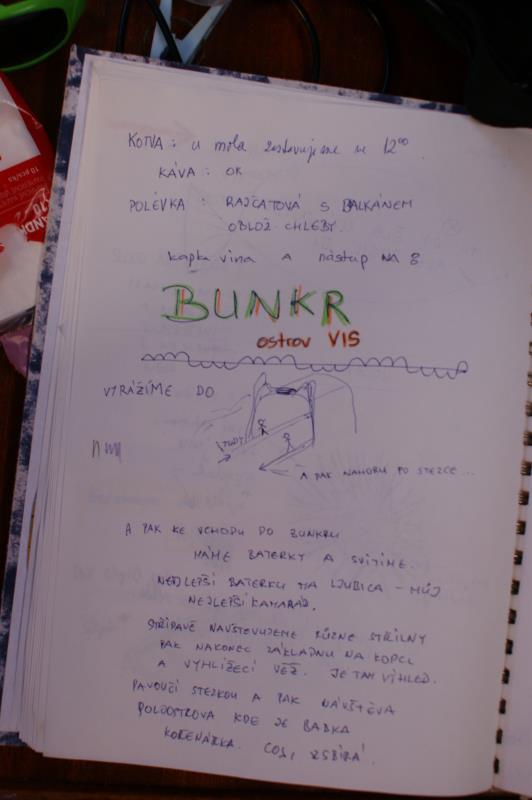 KOTVA : u mola zastavujeme se 12⁰⁰.
KÁVA : OK
POLÉVKA : RAJČATOVÁ S BALKÁNEM
OBLOŽ. CHLEBY.
kapka vína A nástup NA 8
BUNKR
ostrov VIS
VYRÁŽÍME DO
TUDY
A PAK NAHORU PO STEZCE ...
A PAK KE VCHODU DO BUNKRU
MÁME BATERKY A SVÍTÍME.
NEJLEPŠÍ BATERKU MA LJUBICA - MŮJ
NEJLEPŠÍ KAMARÁD.
STŘÍDAVĚ NAVŠTĚVUJEME RŮZNÉ STŘÍLNY
PAK NAKONEC ZÁKLADNU NA KOPCI
A VYHLÍŽECÍ VĚŽ. JE TAM VÝHLED.
PAVOUČÍ STEZKOU A PAK NÁVŠTĚVA
POLOOSTROVA KDE JE BABKA
KOŘENÁŘKA. COSI ZSBÍRÁ.
10 pcs/